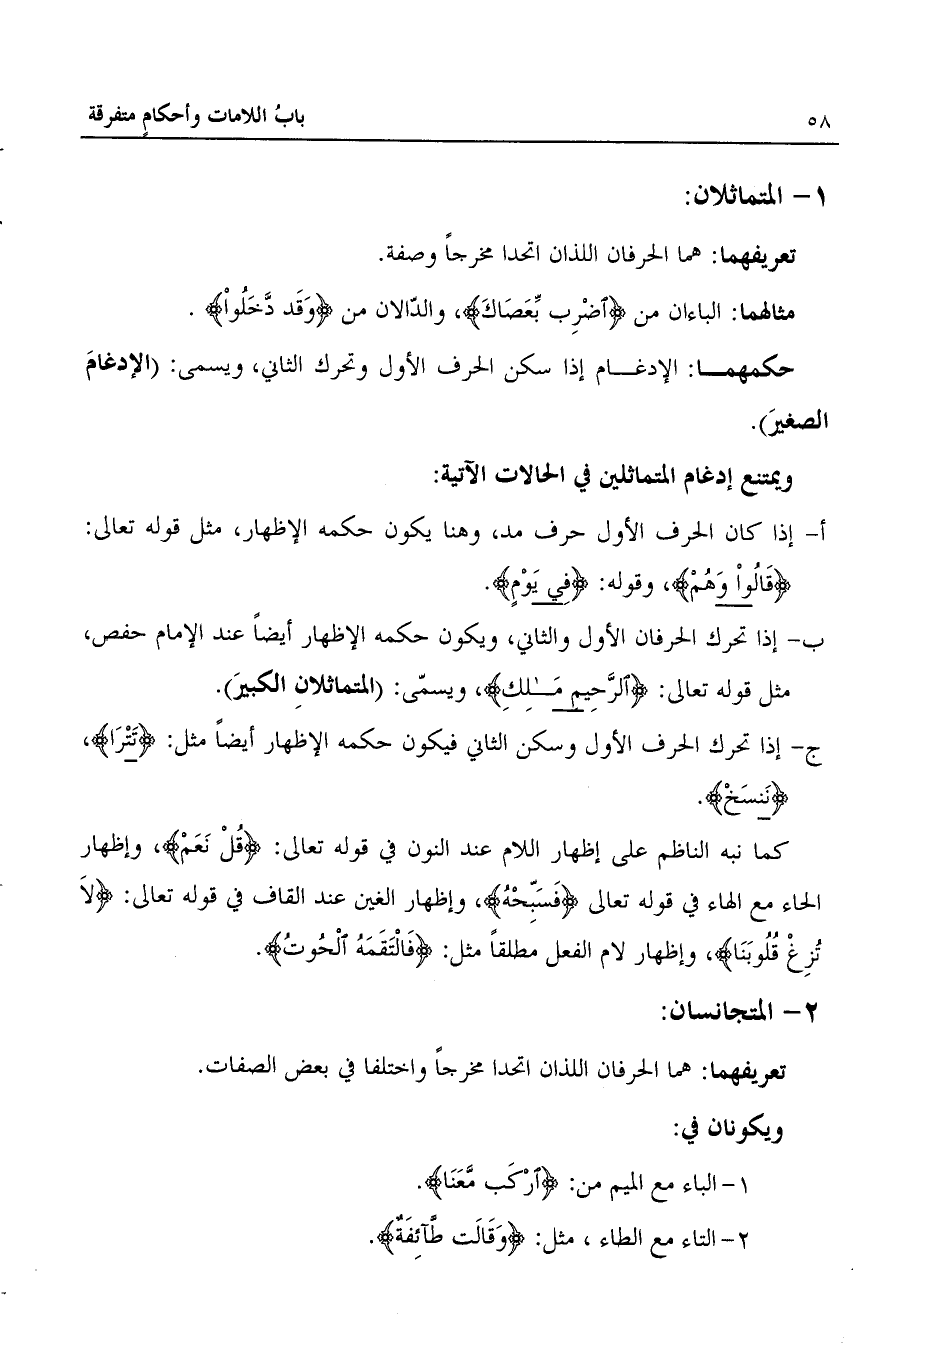 ٥٨ بابُ اللامات وأحكامٍ متفرقة
١- المتماثلان:
تعريفهما: هما الحرفان اللذان اتحدا مخرجاً وصفة.
مثالهما: الباءان من ﴿ٱضْرِب بِّعَصَاكَ﴾، والدّالان من ﴿وَقَد دَّخَلُواْ﴾ .
حكمهمـــا: الإدغـــام إذا سكن الحرف الأول وتحرك الثاني، ويسمى: (الإدغامَ
الصغيرَ).
ويمتنع إدغام المتماثلين في الحالات الآتية:
أ- إذا كان الحرف الأول حرف مد، وهنا يكون حكمه الإظهار، مثل قوله تعالى:
﴿قَالُواْ وَهُمْ﴾، وقوله: ﴿فِي يَوْمٍ﴾.
ب- إذا تحرك الحرفان الأول والثاني، ويكون حكمه الإظهار أيضاً عند الإمام حفص،
مثل قوله تعالى: ﴿ٱلرَّحِيمِ مَـٰلِكِ﴾، ويسمّى: (المتماثلان الكبيرَ).
ج- إذا تحرك الحرف الأول وسكن الثاني فيكون حكمه الإظهار أيضاً مثل: ﴿تَتْرَا﴾،
﴿نَنسَخْ﴾.
كما نبه الناظم على إظهار اللام عند النون في قوله تعالى: ﴿قُلْ نَعَمْ﴾، وإظهار
الحاء مع الهاء في قوله تعالى ﴿فَسَبِّحْهُ﴾، وإظهار الغين عند القاف في قوله تعالى: ﴿لاَ
تُزِغْ قُلُوبَنَا﴾، وإظهار لام الفعل مطلقاً مثل: ﴿فَالْتَقَمَهُ ٱلْحُوتُ﴾.
٢- المتجانسان:
تعريفهما: هما الحرفان اللذان اتحدا مخرجاً واختلفا في بعض الصفات.
ويكونان في:
١- الباء مع الميم من: ﴿ٱرْكَب مَّعَنَا﴾.
٢- التاء مع الطاء ، مثل: ﴿وَقَالَت طَّآئِفَةٌ﴾.